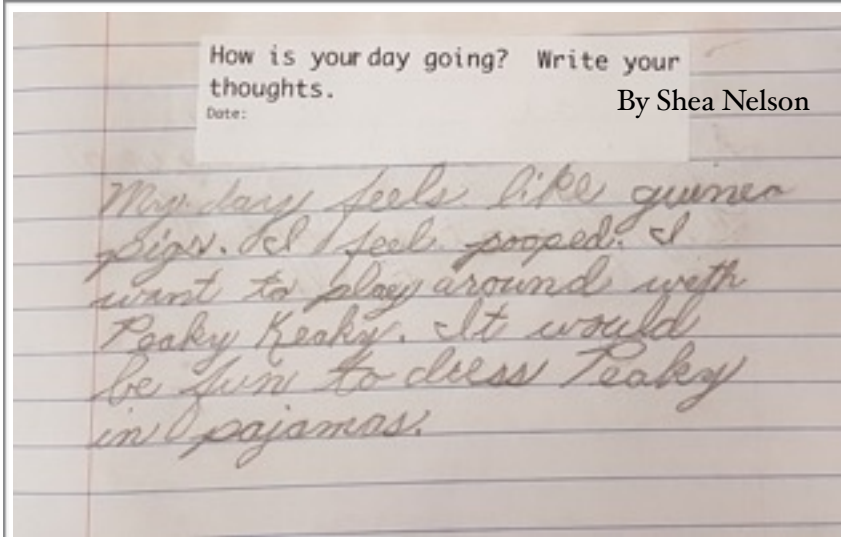 How is your day going? Write your
thoughts.
Date:
By Shea Nelson
My day feels like guinea
pigs. I feel pooped. I
want to play around with
Peaky Keaky. It would
be fun to dress Peaky
in pajamas.